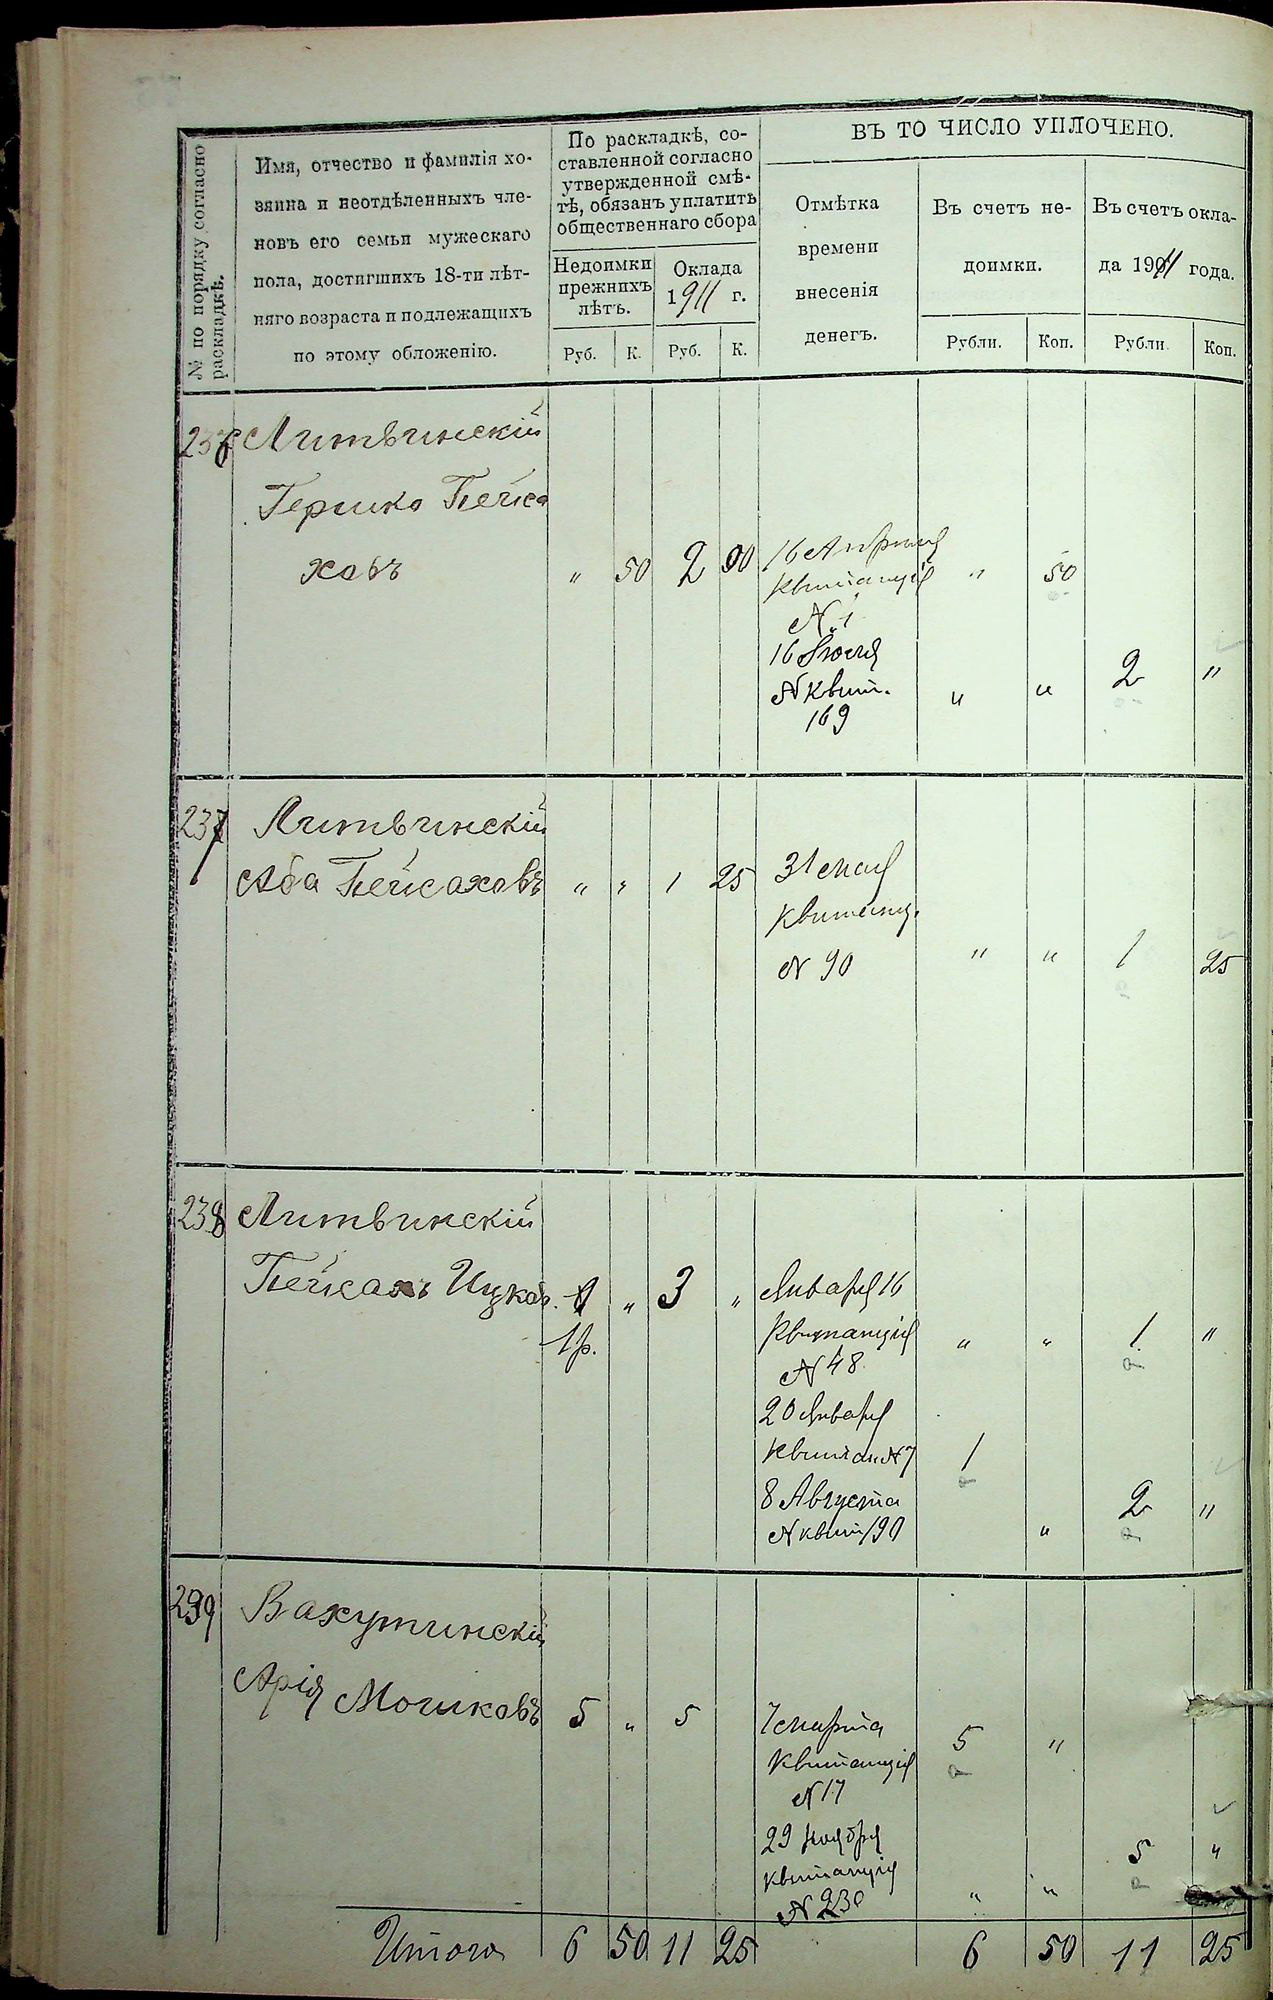 № по порядку согласно
раскладкѣ.
Имя, отчество и фамилія хо-
зяина и неотдѣленныхъ чле-
новъ его семьи мужескаго
пола, достигшихъ 18-ти лѣт-
няго возраста и подлежащихъ
по этому обложенію.
По раскладкѣ, со-
ставленной согласно
утвержденной смѣ-
тѣ, обязанъ уплатить
общественнаго сбора
Недоимки
прежнихъ
лѣтъ.
Оклада
1911 г.
Руб. К. Руб. К.
ВЪ ТО ЧИСЛО УПЛОЧЕНО.
Отмѣтка
времени
внесенія
денегъ.
Въ счетъ не-
доимки.
Въ счетъ окла-
да 1911 года.
Рубли. Коп. Рубли. Коп.
236 Литвинскій
Гершко Пейса
ховъ " 50 2 00 16 Апрѣля
Квитанція " 50
N 1
16 Іюня
N квит. " " 2 "
169
237 Литвинскій
Аба Пейсаховъ " " 1 25 31 мая
Квитанц.
N 90 " " 1 25
238 Литвинскій
Пейсахъ Ицков. " 3 " Января 16
1р. Квитанція " " 1 "
N 48
20 Января
Квитан N 7 1
8 Августа 2 "
N квит 190 "
239 Вахутинскій
Арія Мошковъ 5 " 5 7 марта
Квитанція 5 "
N 17
29 Ноября
квитанція 5 "
N 230 " "
Итого 6 50 11 25 6 50 11 25